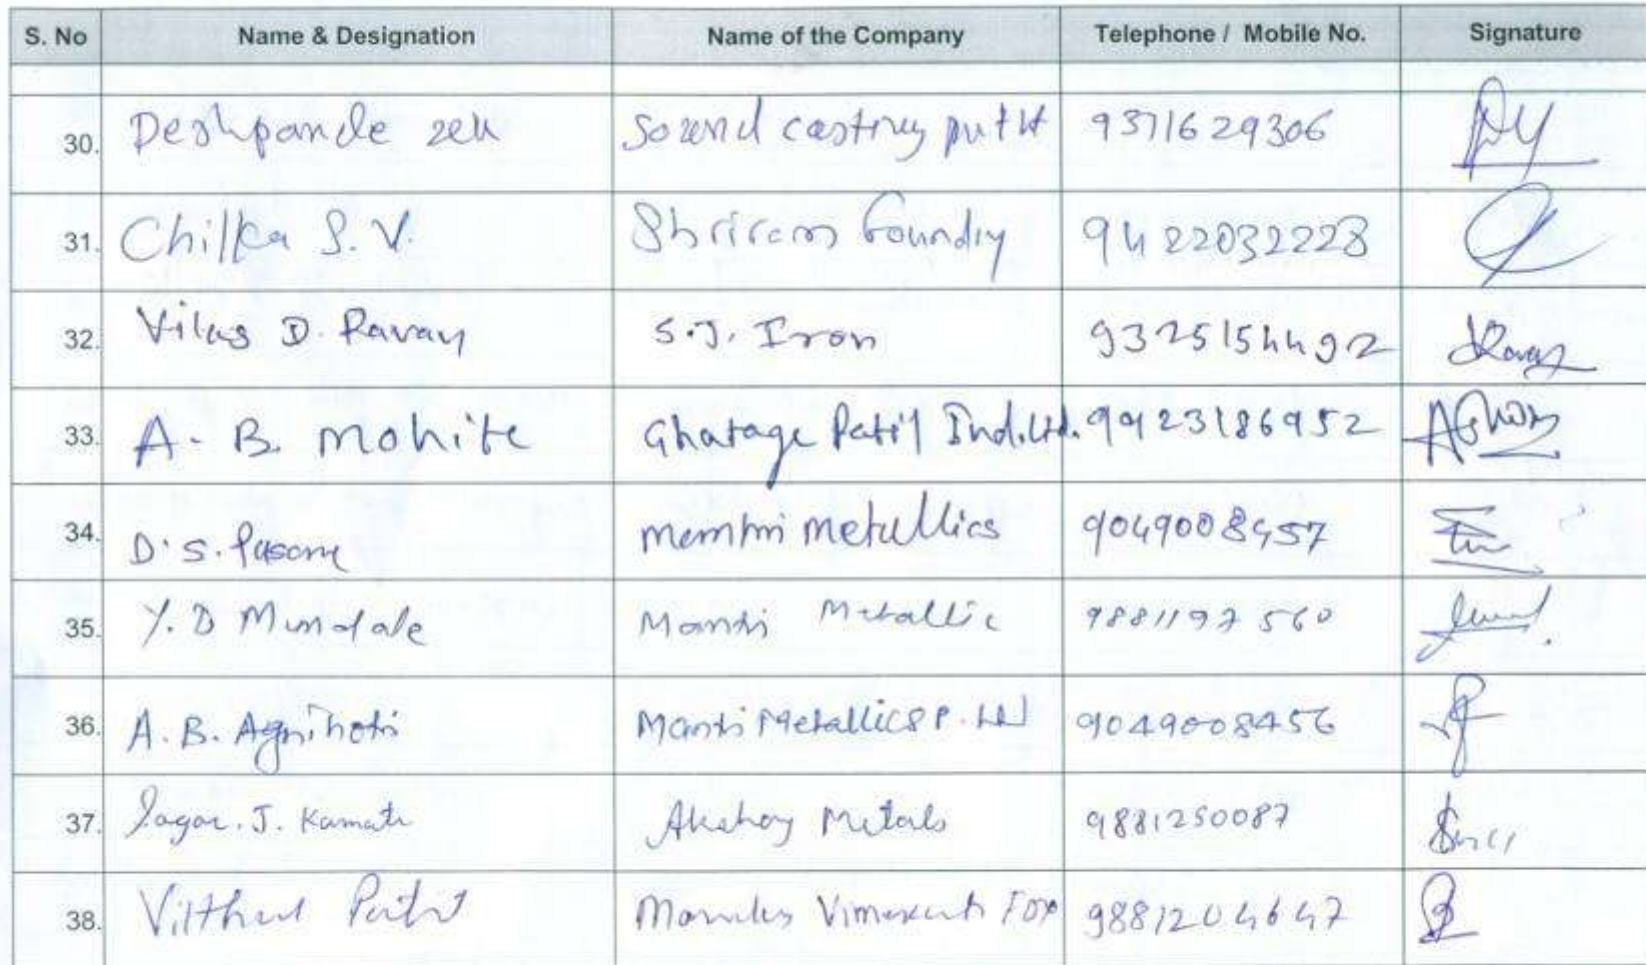 S. No Name & Designation Name of the Company Telephone / Mobile No. Signature
30. Deshpande Sound casting pvt lt 9371629306
31. Chilka S. V. Shriram foundry 9422032228
32. Vilas D. Ravan S.J. Iron 9325154492
33. A. B. Mohite Ghatage Patil Ind. Ltd. 9923186952
34. D. S. metallics 9049008457
35. Y. D Metallic 9881197560
36. A. B. Agnihotri Metallics P. Ltd 9049008456
37. Sagar. J. Kamate Akshay Metals 9881250087
38. Vitthal Patil 9881204647